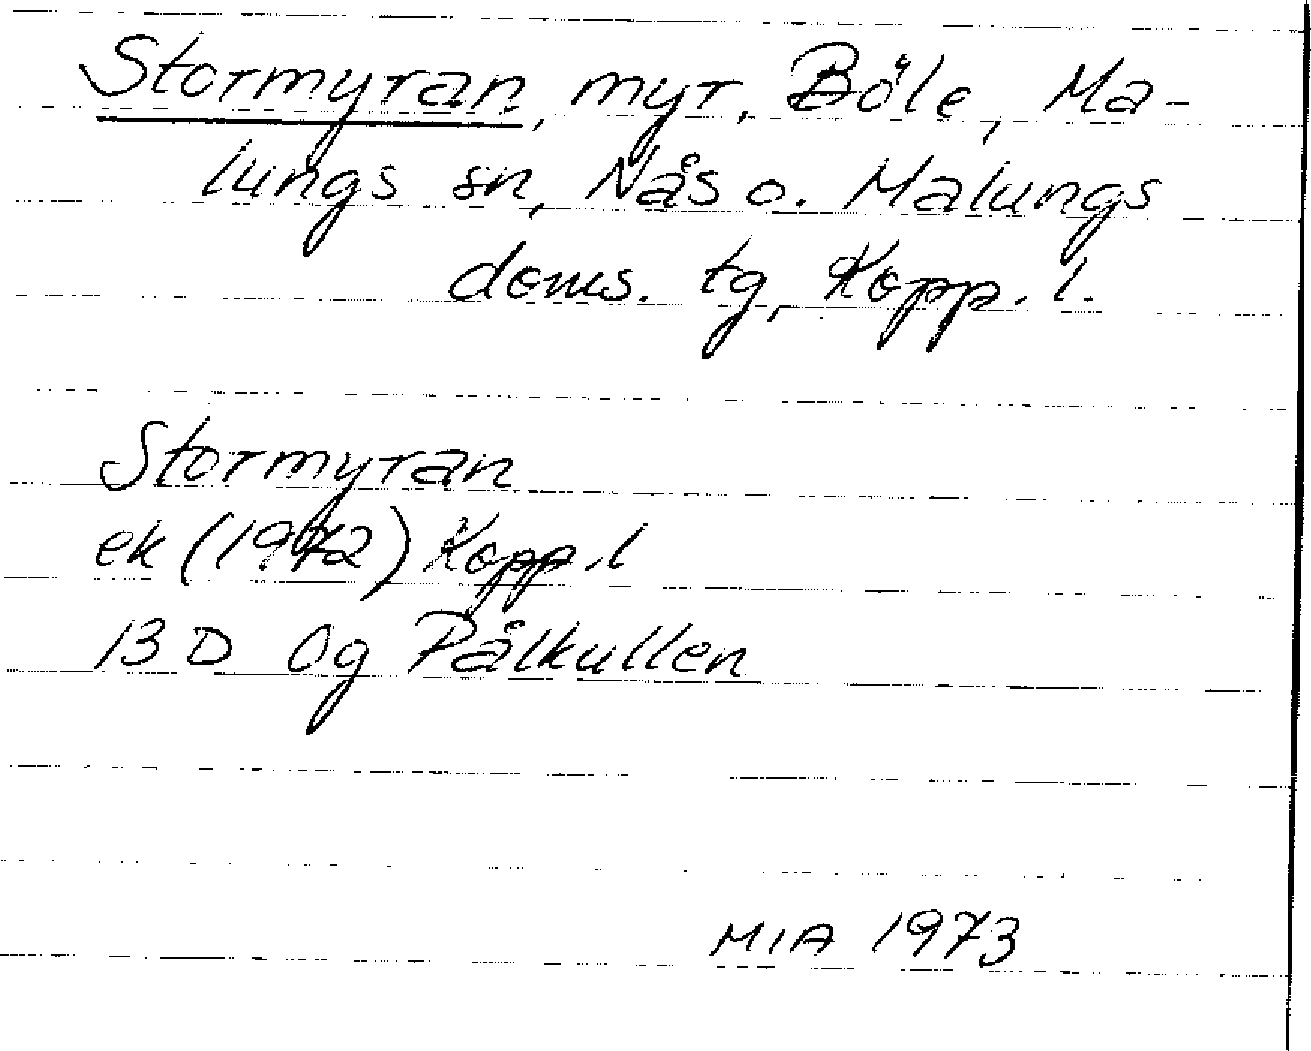 Stormyran, myr, Böle, Ma-
lungs sn, Nås o. Malungs
doms. tg, Kopp. l.
Stormyran
ek (1972) Kopp. l
13 D 0g Pålkullen
MIA 1973